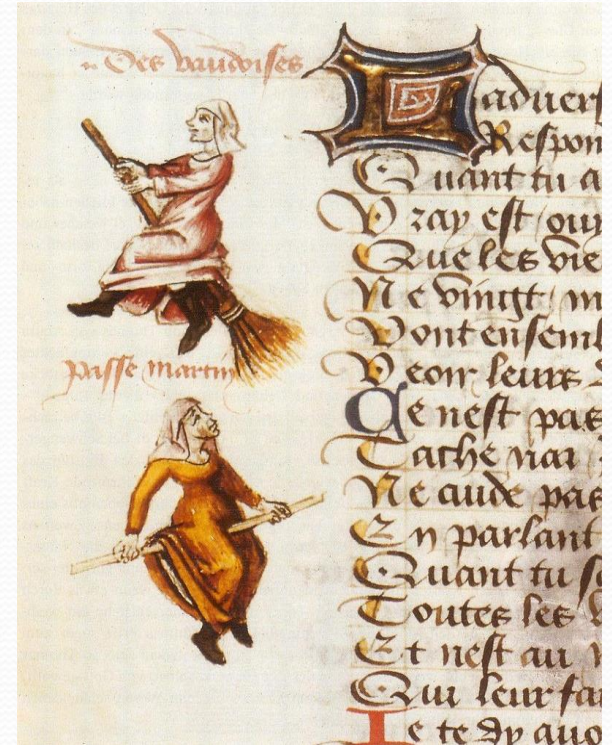 Des vaudoises
passe martin
Ladvers
Respon
Quant tu a
Vray est / ouy
Que les vie
Ne vingt / m
Vont ensembl
Veoir leurs
Ce nest pas
Tache
Ne cuide pas
En parlant
Quant tu
Toutes les
Et nest au
Qui leur fa
Je te dy avo